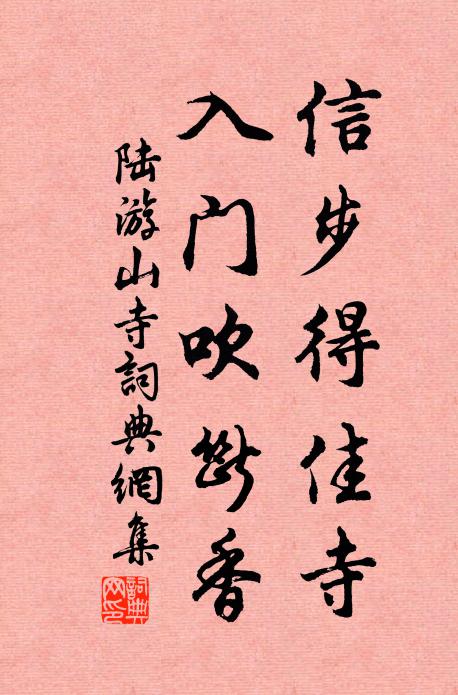 信步得佳寺
入门吹断香
陆游山寺詞典網集
詞典网印